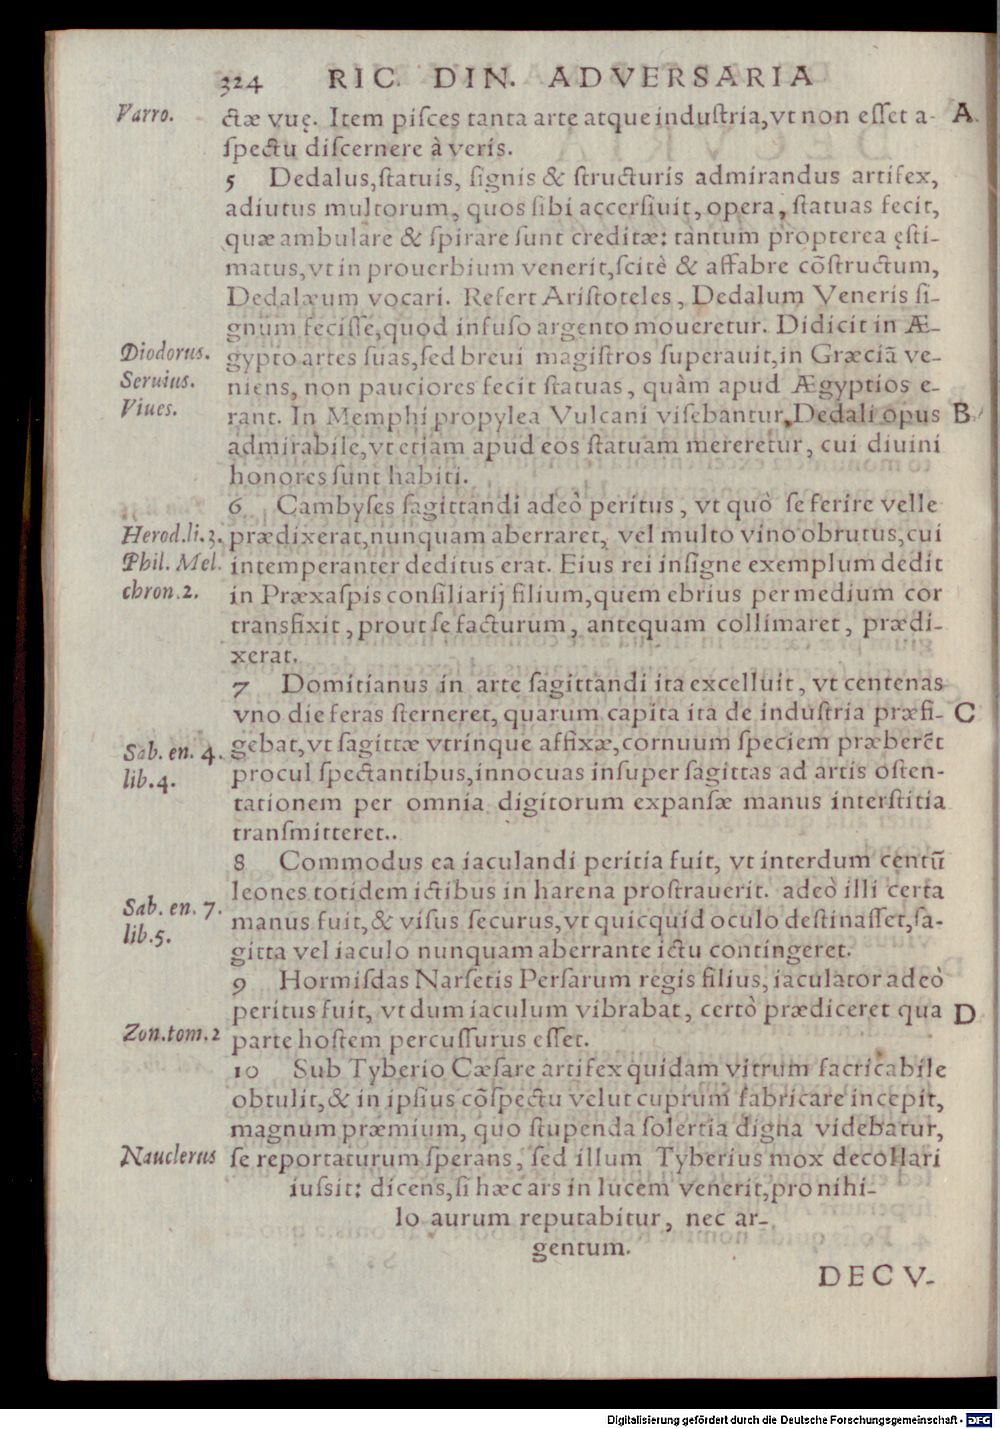 324 RIC. DIN. ADVERSARIA
Varro.
ctæ vuę. Item piſces tanta arte atque induſtria,vt non eſſet a- A
ſpectu diſcernere à veris.
5 Dedalus,ſtatuis, ſignis & ſtructuris admirandus artifex,
adiutus multorum, quos ſibi accerſiuit, opera, ſtatuas fecit,
quæ ambulare & ſpirare ſunt creditæ: tantum propterea ęſti-
matus,vt in prouerbium venerit,ſcitè & affabre cõſtructum,
Dedalæum vocari. Refert Ariſtoteles, Dedalum Veneris ſi-
gnum feciſſe,quod infuſo argento moueretur. Didicit in Æ-
Diodorus.
gypto artes ſuas,ſed breui magiſtros ſuperauit,in Græciã ve-
Seruius.
niens, non pauciores fecit ſtatuas, quàm apud Ægyptios e-
Viues.
rant. In Memphi propylea Vulcani viſebantur,Dedali opus B
admirabile,vt etiam apud eos ſtatuam mereretur, cui diuini
honores ſunt habiti.
6 Cambyſes ſagittandi adeò peritus, vt quò ſe ferire velle
Herod.li.3.
prædixerat,nunquam aberraret, vel multo vino obrutus,cui
Phil. Mel.
intemperanter deditus erat. Eius rei inſigne exemplum dedit
chron.2.
in Præxaſpis conſiliarij filium,quem ebrius per medium cor
transfixit, prout ſe facturum, antequam collimaret, prædi-
xerat.
7 Domitianus in arte ſagittandi ita excelluit, vt centenas
vno die feras ſterneret, quarum capita ita de induſtria præfi- C
Sab. en. 4.
gebat,vt ſagittæ vtrinque affixæ,cornuum ſpeciem præberẽt
lib.4.
procul ſpectantibus,innocuas inſuper ſagittas ad artis oſten-
tationem per omnia digitorum expanſæ manus interſtitia
tranſmitteret..
8 Commodus ea iaculandi peritia fuit, vt interdum centũ
leones totidem ictibus in harena proſtrauerit. adeò illi certa
Sab. en. 7.
manus fuit,& viſus ſecurus,vt quicquid oculo deſtinaſſet,ſa-
lib.5.
gitta vel iaculo nunquam aberrante ictu contingeret.
9 Hormiſdas Narſetis Perſarum regis filius, iaculator adeò
peritus fuit, vt dum iaculum vibrabat, certò prædiceret qua D
Zon.tom.2
parte hoſtem percuſſurus eſſet.
10 Sub Tyberio Cæſare artifex quidam vitrum facticabile
obtulit,& in ipſius cõſpectu velut cuprum fabricare incepit,
magnum præmium, quo ſtupenda ſolertia digna videbatur,
Nauclerus
ſe reportaturum ſperans, ſed illum Tyberius mox decollari
iuſsit: dicens,ſi hæc ars in lucem venerit,pro nihi-
lo aurum reputabitur, nec ar-
gentum.
DECV-
Digitalisierung gefördert durch die Deutsche Forschungsgemeinschaft - DFG